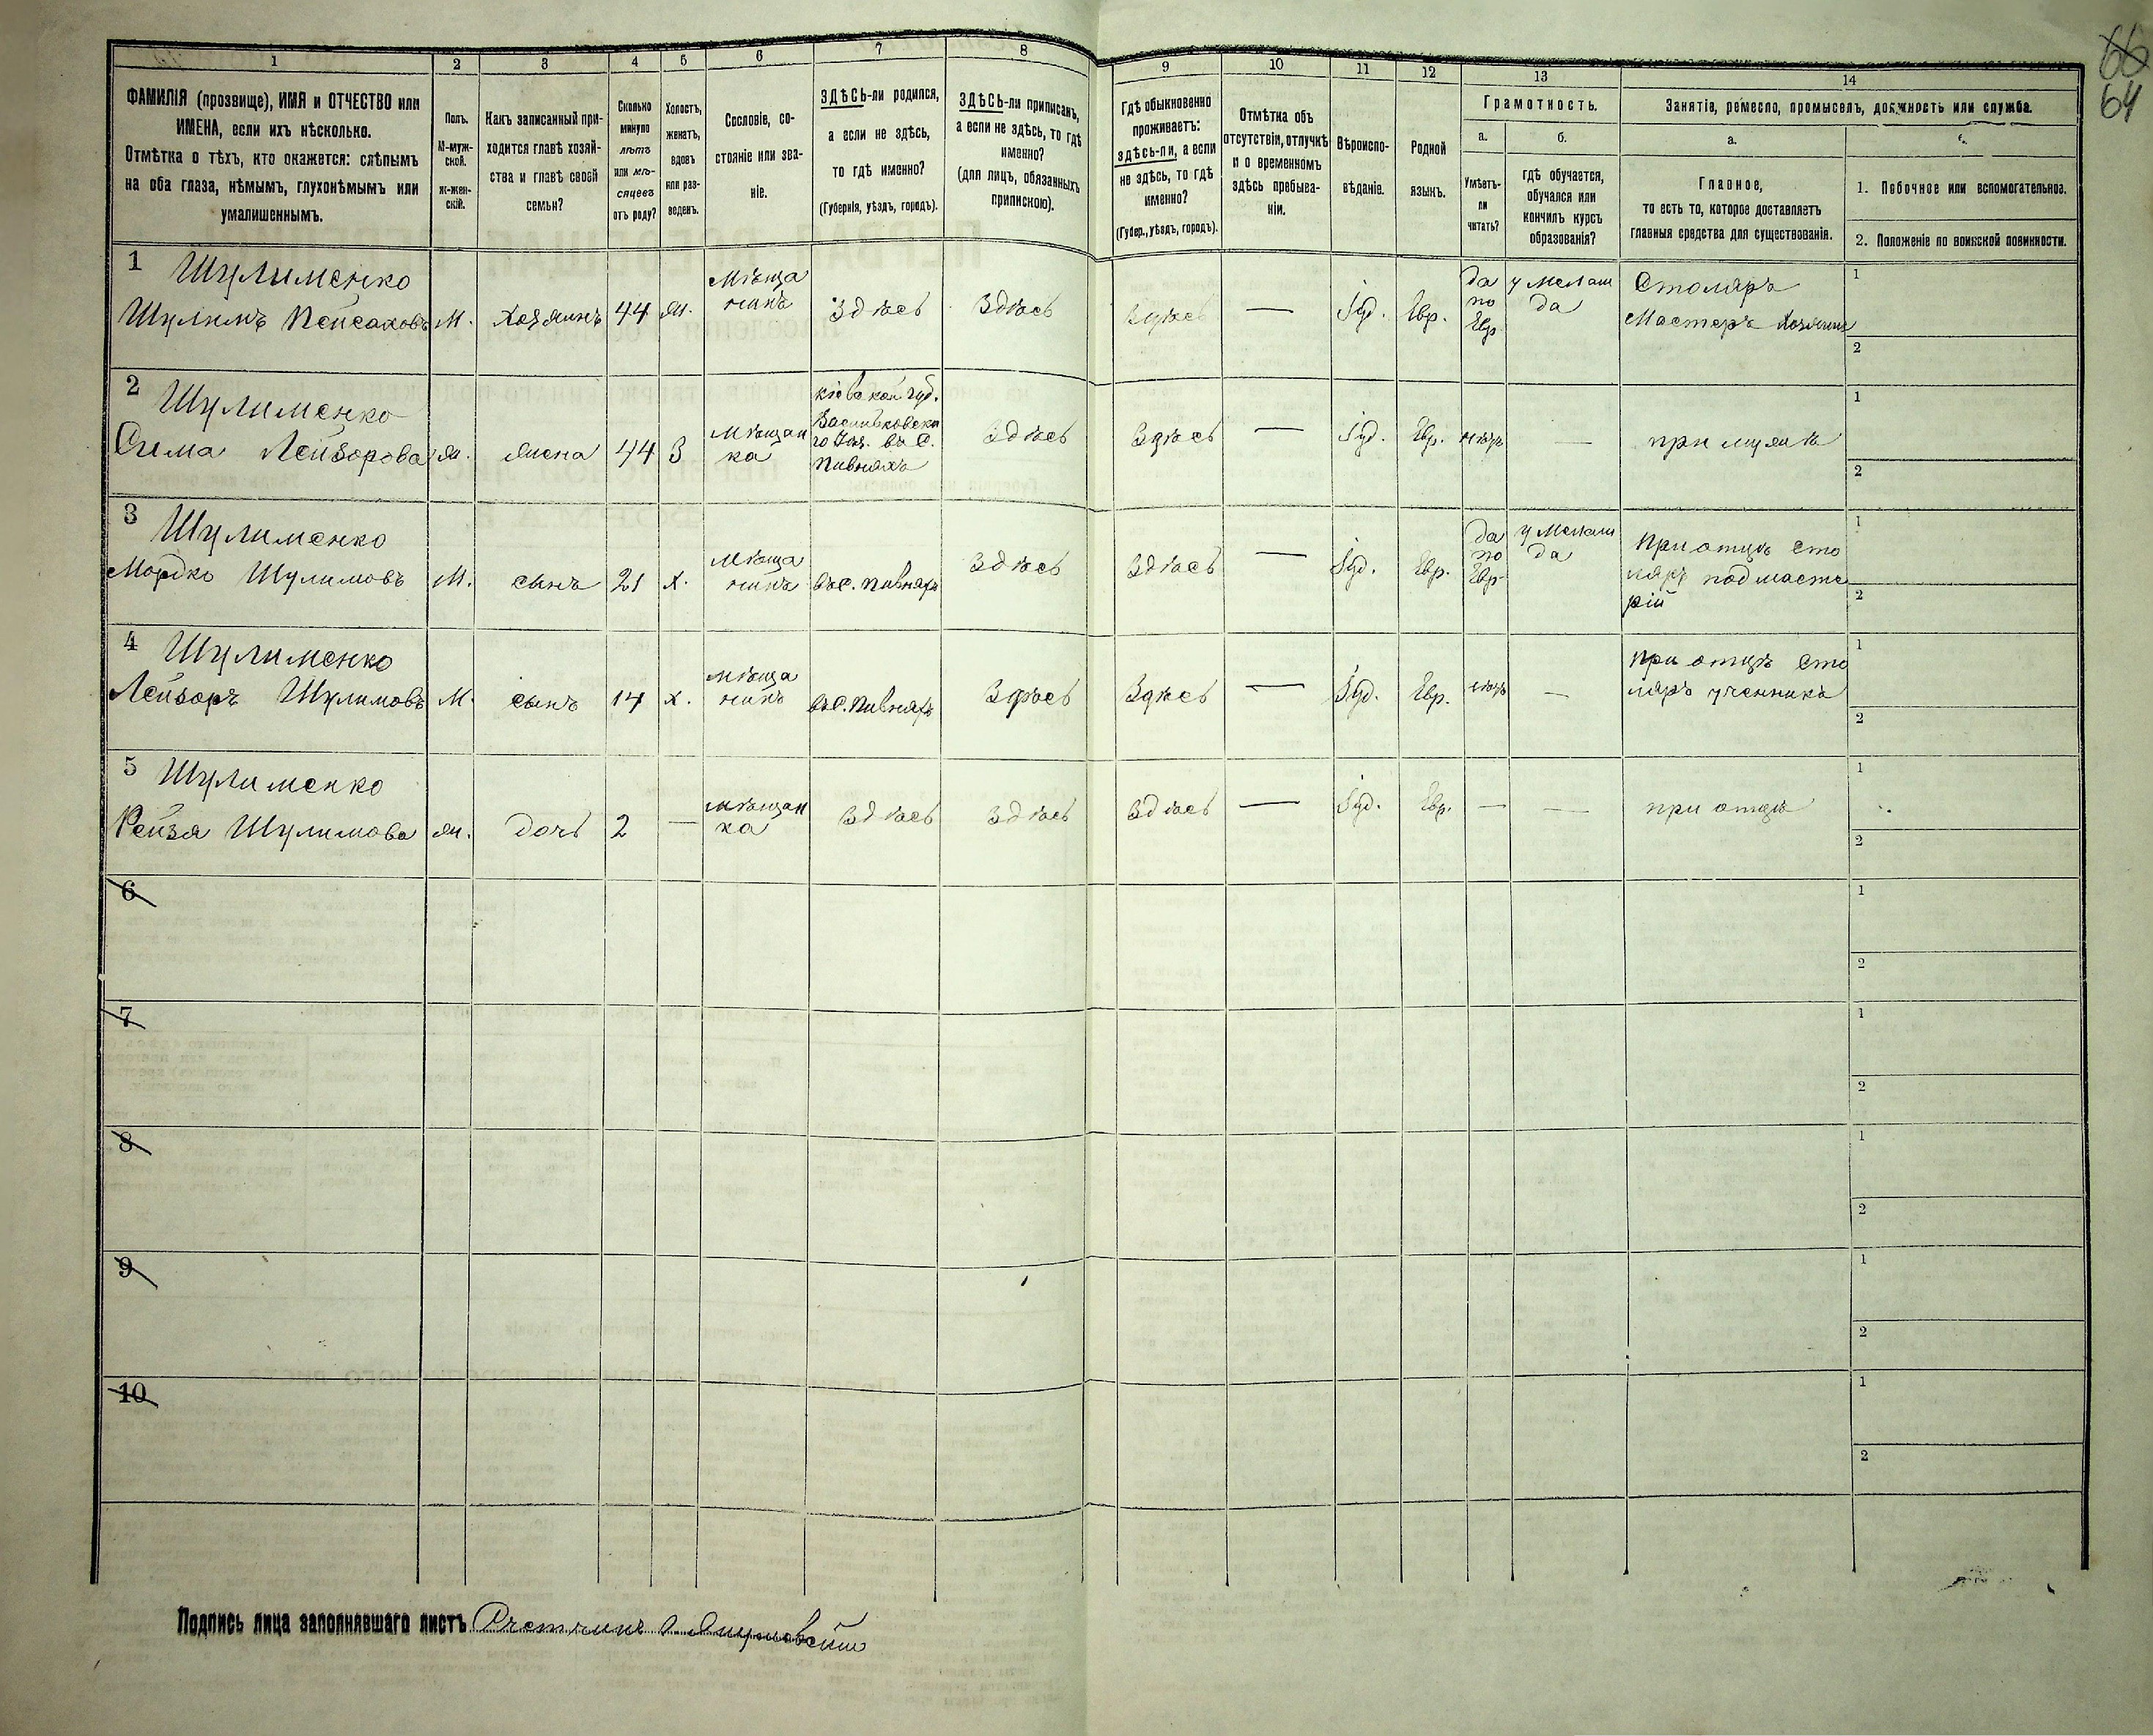 66
64
1
2
3
4
5
6
7
8
9
10
11
12
13
14
ФАМИЛІЯ (прозвище), ИМЯ и ОТЧЕСТВО или
ИМЕНА, если ихъ нѣсколько.
Отмѣтка о тѣхъ, кто окажется: слѣпымъ
на оба глаза, нѣмымъ, глухонѣмымъ или
умалишеннымъ.
Полъ.
М-муж-
ской.
ж-жен-
скій.
Какъ записанный при-
ходится главѣ хозяй-
ства и главѣ своей
семьи?
Сколько
минуло
лѣтъ
или мѣ-
сяцевъ
отъ роду?
Холостъ,
женатъ,
вдовъ
или раз-
веденъ.
Сословіе, со-
стояніе или зва-
ніе.
ЗДѢСЬ-ли родился,
а если не здѣсь,
то гдѣ именно?
(Губернія, уѣздъ, городъ).
ЗДѢСЬ-ли приписанъ,
а если не здѣсь, то гдѣ
именно?
(для лицъ, обязанныхъ
припискою).
Гдѣ обыкновенно
проживаетъ:
здѣсь-ли, а если
не здѣсь, то гдѣ
именно?
(Губер., уѣздъ, городъ).
Отмѣтка объ
отсутствіи, отлучкѣ
и о временномъ
здѣсь пребыва-
ніи.
Вѣроиспо-
вѣданіе.
Родной
языкъ.
Грамотность.
а.
Умѣетъ-
ли
читать?
б.
гдѣ обучается,
обучался или
кончилъ курсъ
образованія?
Занятіе, ремесло, промыселъ, должность или служба.
а.
Главное,
то есть то, которое доставляетъ
главныя средства для существованія.
1. Побочное или вспомогательное.
2. Положеніе по воинской повинности.
1 Шулименко
Шулимъ Пейсаховъ
М.
хозяинъ
44
ж.
Мѣща
нинъ
Здѣсь
Здѣсь
Здѣсь
—
Іуд.
Евр.
да
по
Евр
у Мелам
да
Столяръ
Мастеръ Хозяинъ
1
2
2 Шулименко
Сима Лейзорова
ж.
жена
44
З
мѣщан
ка
Кіевской губ.
Васильковска
го Уѣз. въ С.
Пивняхъ
Здѣсь
Здѣсь
—
Іуд.
Евр.
нѣтъ
—
при мужѣ
1
2
3 Шулименко
Мордко Шулимовъ
М.
сынъ
21
х.
мѣща
нинъ
въ С. Пивняхъ
Здѣсь
Здѣсь
—
Іуд.
Евр.
да
по
Евр
у Мелам
да
При отцѣ сто
ляръ подмасте
рій
1
2
4 Шулименко
Лейзоръ Шулимовъ
М.
сынъ
14
х.
мѣща
нинъ
въ С. Пивняхъ
Здѣсь
Здѣсь
—
Іуд.
Евр.
нѣтъ
—
При отцѣ сто
ляръ ученникъ
1
2
5 Шулименко
Рейзя Шулимова
ж.
дочь
2
—
мѣщан
ка
Здѣсь
Здѣсь
Здѣсь
—
Іуд.
Евр.
—
—
при отцѣ
1
2
6
1
2
7
1
2
8
1
2
9
1
2
10
1
2
Подпись лица заполнявшаго листъ Счетчикъ